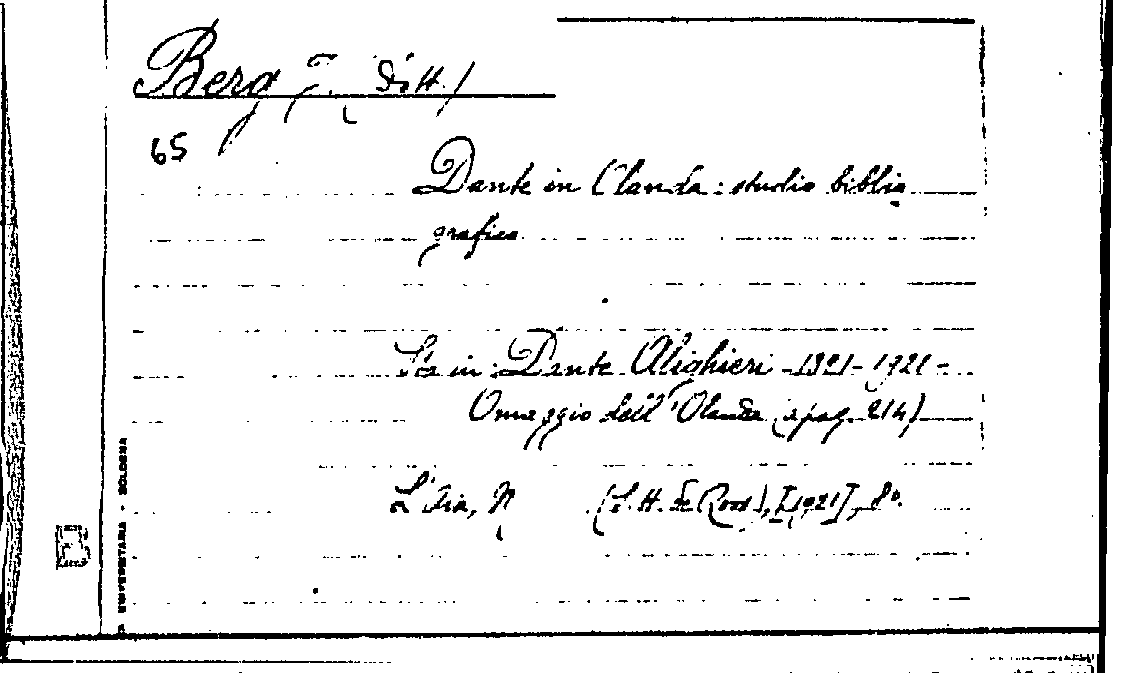 Berg J. (Dott.)
65
Dante in Olanda: studio biblio
grafico
Sta in: Dante Alighieri - 1321-1921 -
Omaggio dell'Olanda (a pag. 214)
L'Aia, N (L. H. de Roos), [1921], 8°.
UNIVERSITARIA - BOLOGNA